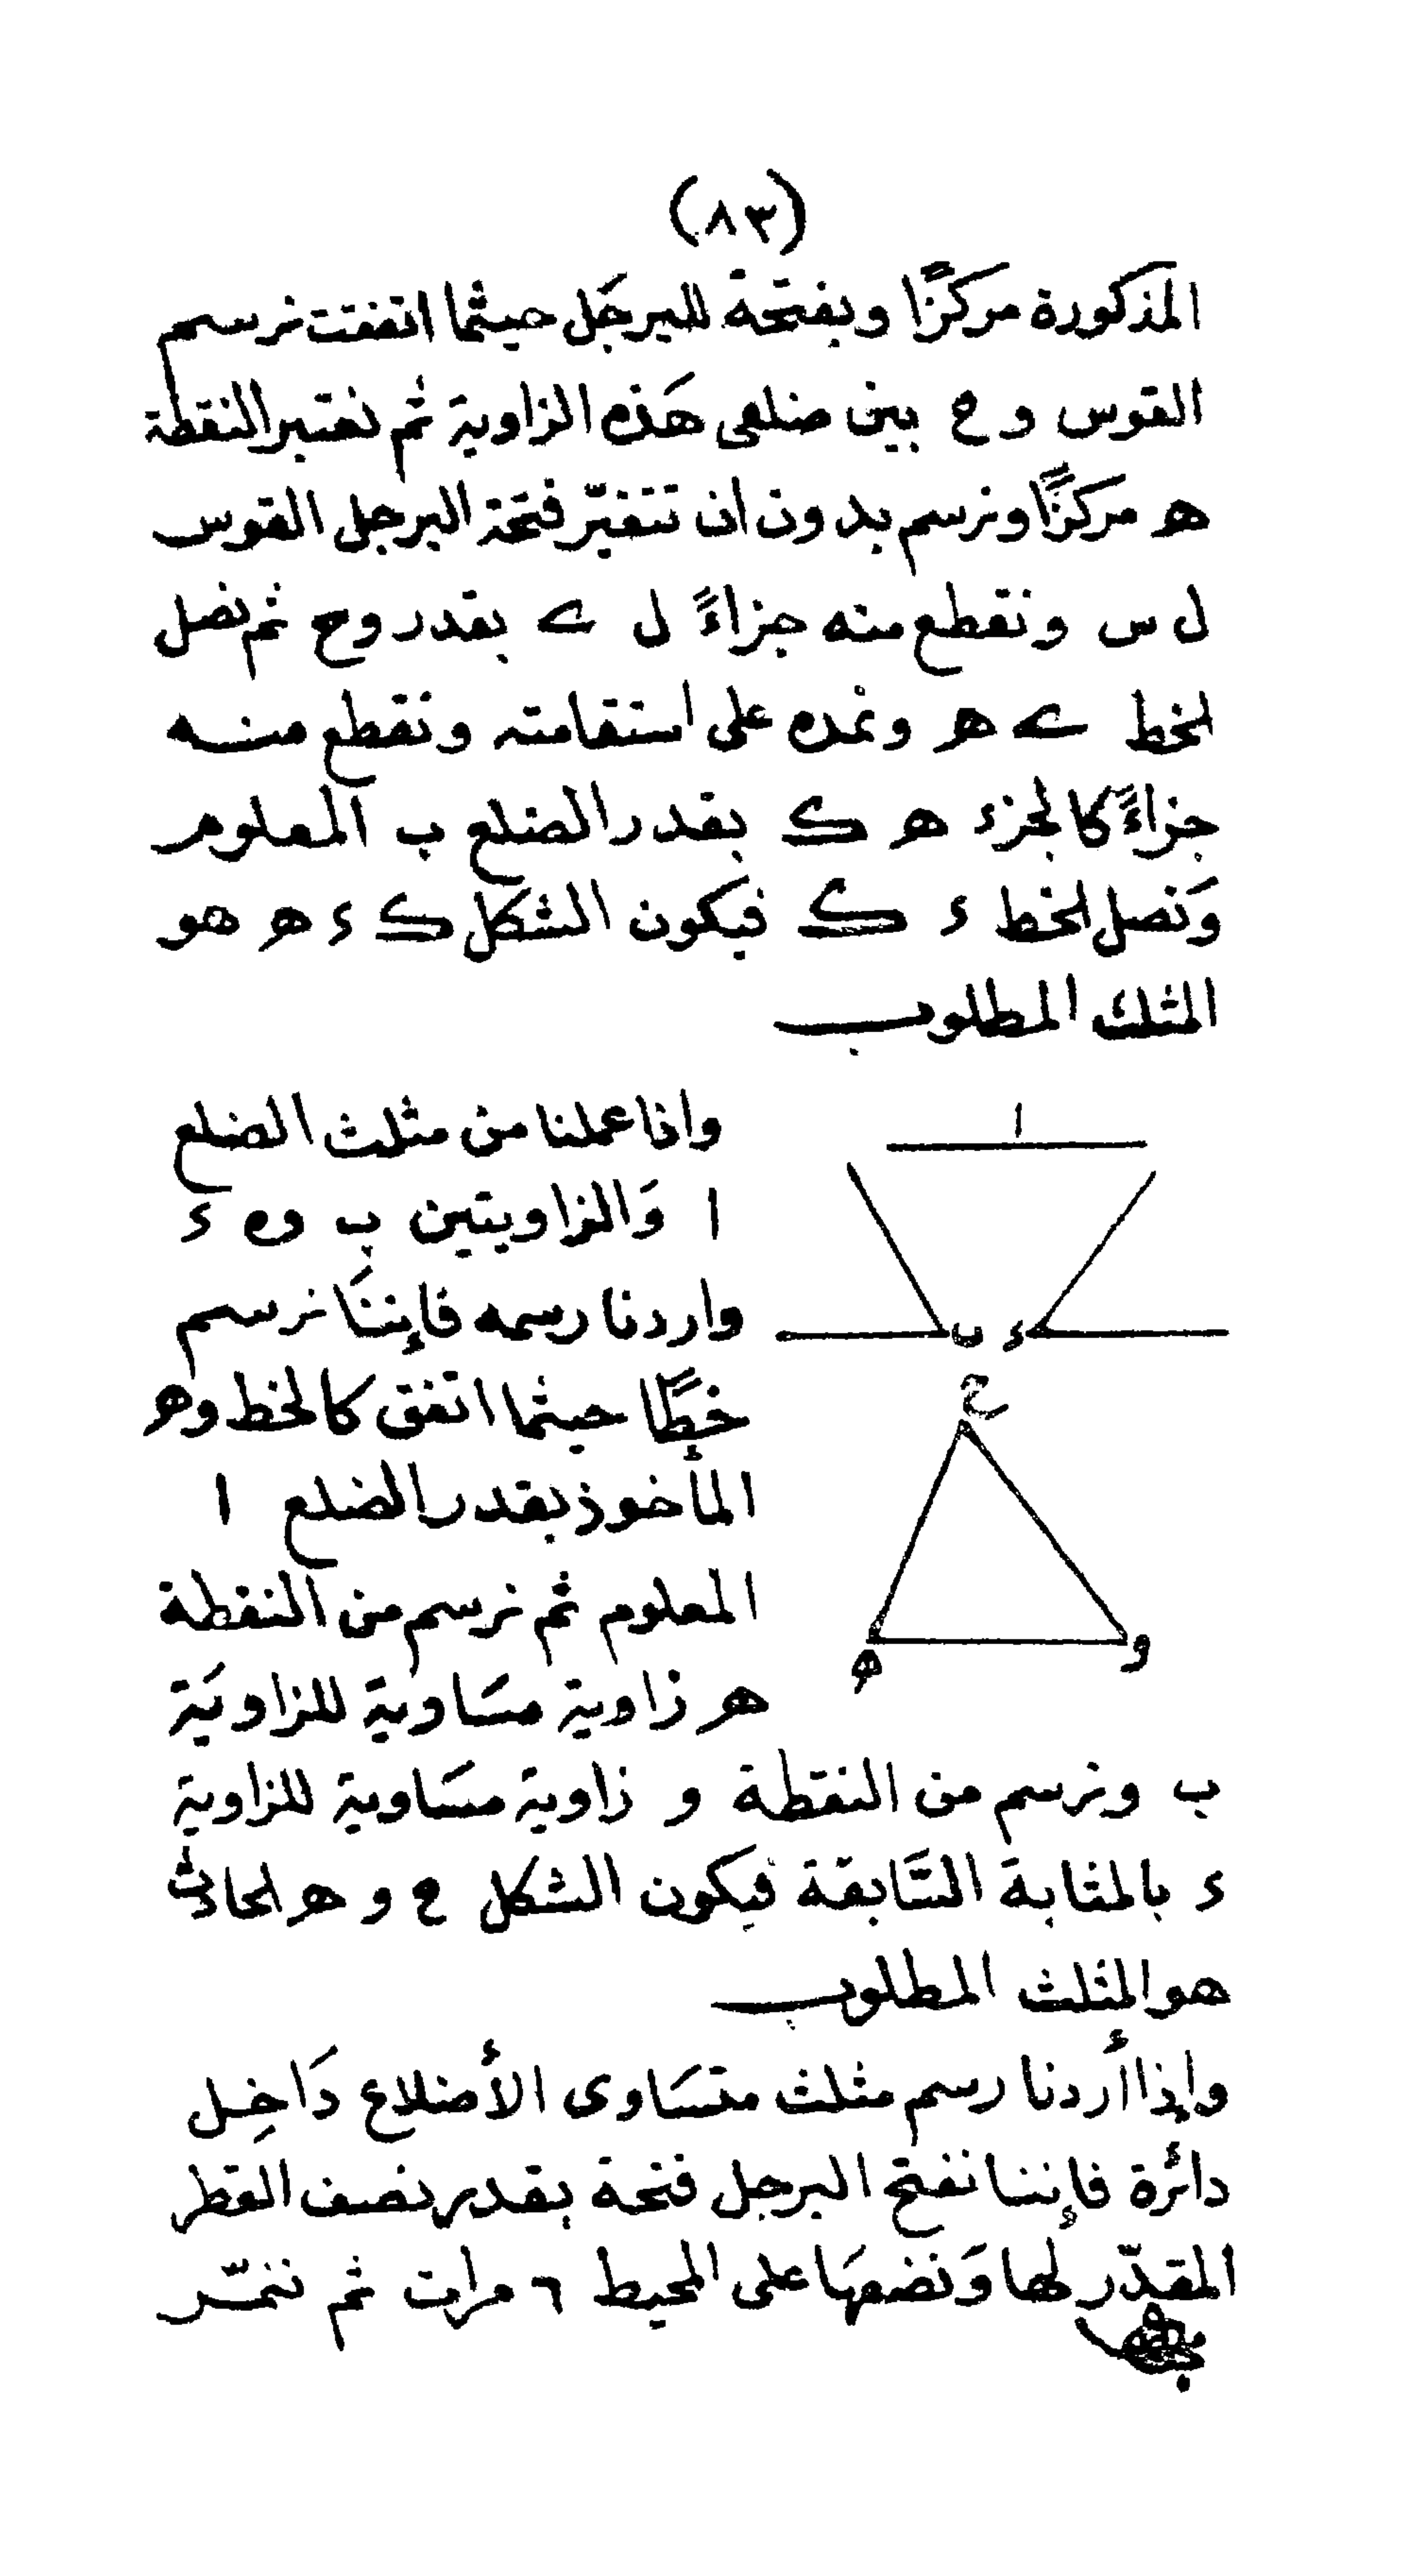 (٨٣)
المذكورة مركزًا وبفتحة للبرجل حيثما اتفقت نرسم
القوس و ح بين ضلعى هذه الزاوية ثم نعتبر النقطة
ه مركزًا ونرسم بدون ان تتغيّر فتحة البرجل القوس
ل س ونقطع منه جزاءً ل ے بقدر وح ثم نصل
الخط ے ه ونمده على استقامته ونقطع منه
جزاءً كالجزء ه ك بقدر الضلع ب المعلوم
وَنصل الخط ء ك فيكون الشكل ك ء ه هو
المثلث المطلوب
ا
ب ء
ح
ه و
واذا عملنا من مثلث الضلع
ا وَالزاويتين ب وه ء
واردنا رسمه فإننَا نرسم
خطًّا حيثما اتفق كالخط وه
المأخوذ بقدر الضلع ا
المعلوم ثم نرسم من النقطة
ه زاوية مسَاوية للزاويَة
ب ونرسم من النقطة و زاوية مسَاوية للزاوية
ء بالمثابة السَّابقة فيكون الشكل ح و ه الحادث
هو المثلث المطلوب
وإذا أردنا رسم مثلث متسَاوى الأضلاع دَاخِل
دائرة فإننا نفتح البرجل فتحة بقدر نصف القطر
المقدّر لها وَنضعهَا على المحيط ٦ مرات ثم نمرّ